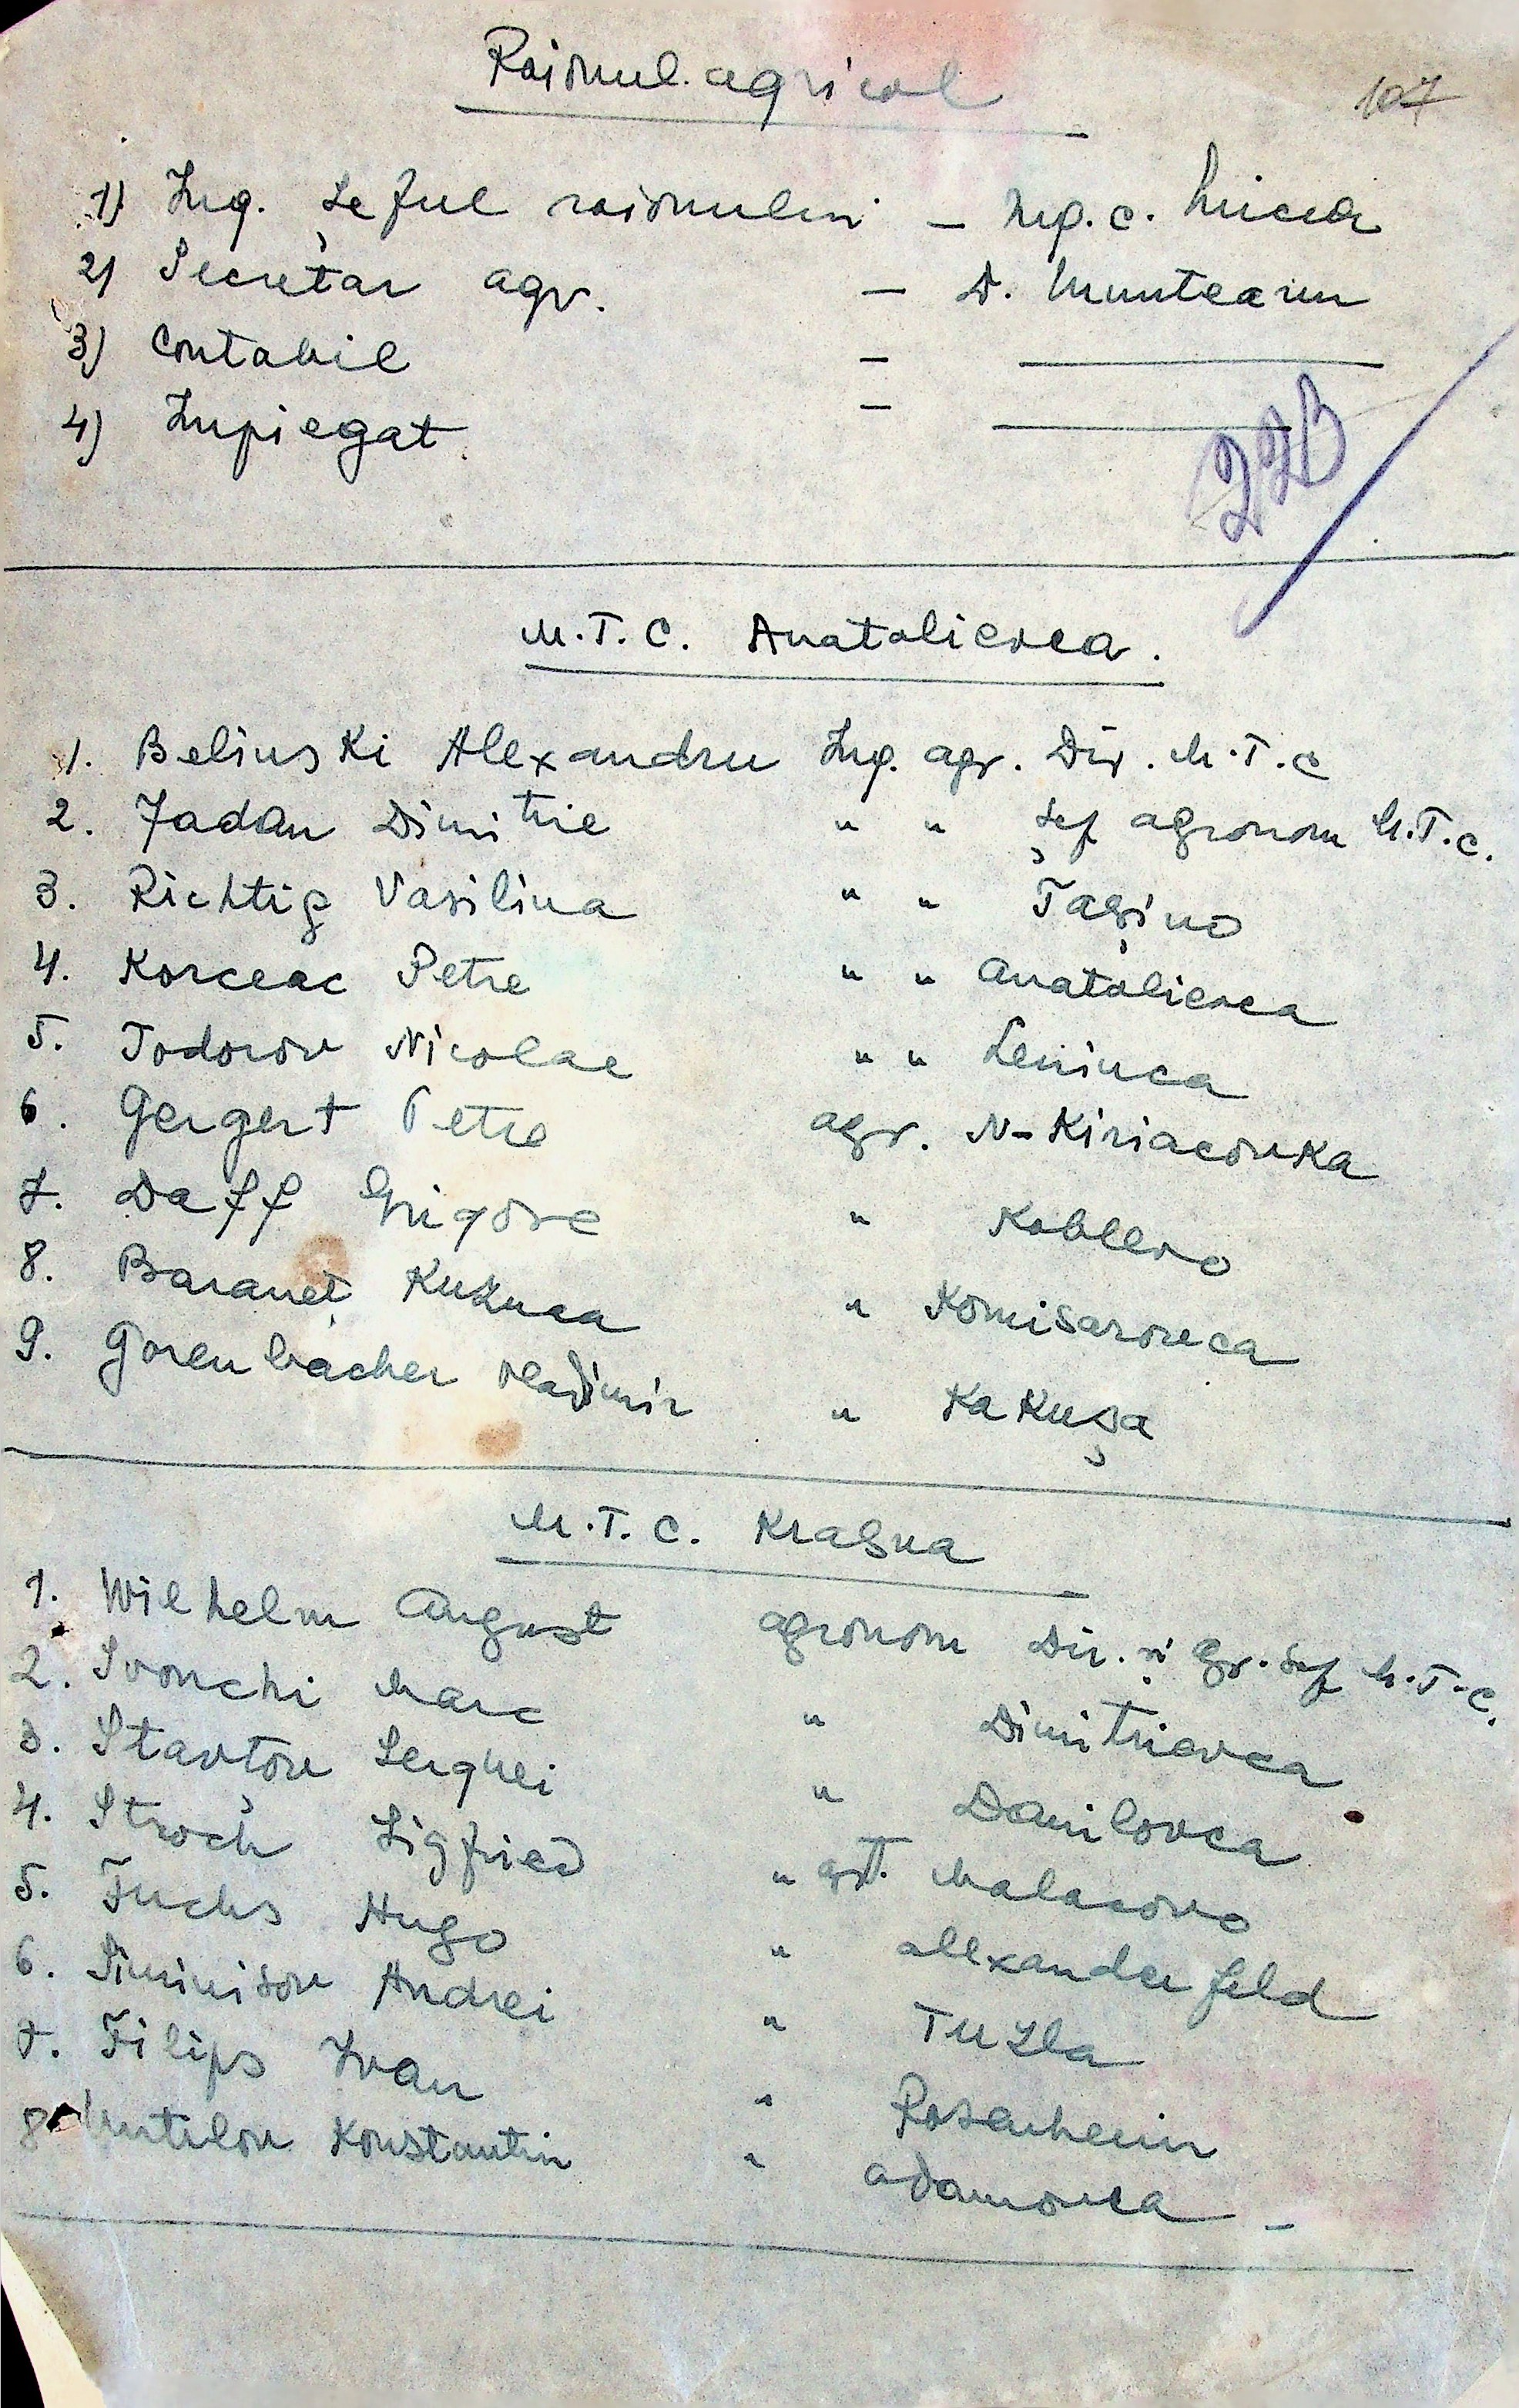 Raionul agricol
107
1) Ing. Șeful raionului – Ing. C. Mircea
2) Secretar agr. – D. Munteanu
3) Contabil –
4) Impiegat –
M.T.C. Anatolievca.
1. Belinski Alexandru Ing. agr. Dir. M.T.C
2. Jadan Dimitrie " " Șef agronom M.T.C.
3. Richtig Vasilina " " Tașino
4. Korceac Petre " " Anatolievca
5. Todorov Nicolae " " Leninca
6. Gergert Petre agr. N-Kiriacovka
7. Daff Grigore " Koblevo
8. Baraneț Kuzmaa " Komisarovca
9. Gorenbacher Vladimir " Kakușa
M.T.C. Krasna
1. Wilhelm August agronom Dir. și gr. Șef M.T.C.
2. Ivonchi Marc " Dimitrievca
3. Stavțov Serghei " Danilovca
4. Stroch Sigfried " Malacovo
5. Fuchs Hugo " Alexanderfeld
6. Andrei " Tuzla
7. Filips Ivan " Rosenheim
8. Konstantin " Adamovca –